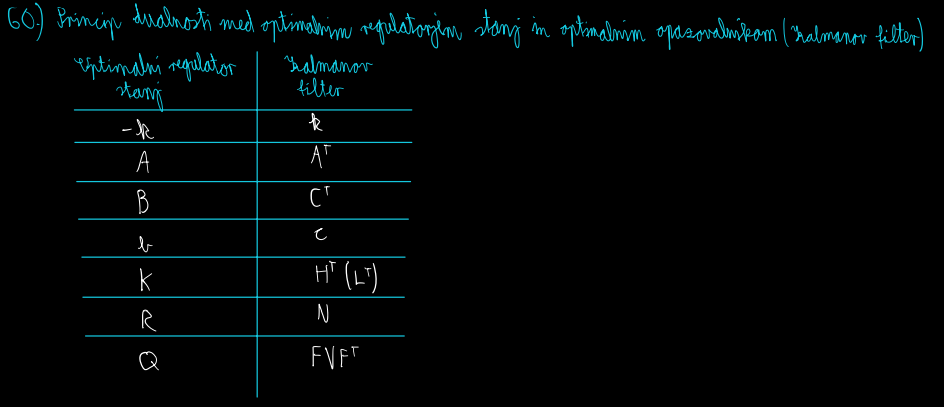 60.) Princip dualnosti med optimalnim regulatorjem stanj in optimalnim opazovalnikom (Kalmanov filter)
Optimalni regulator stanj
Kalmanov filter
-k k
A Aᵀ
B Cᵀ
b c
K Hᵀ (Lᵀ)
R N
Q FVFᵀ